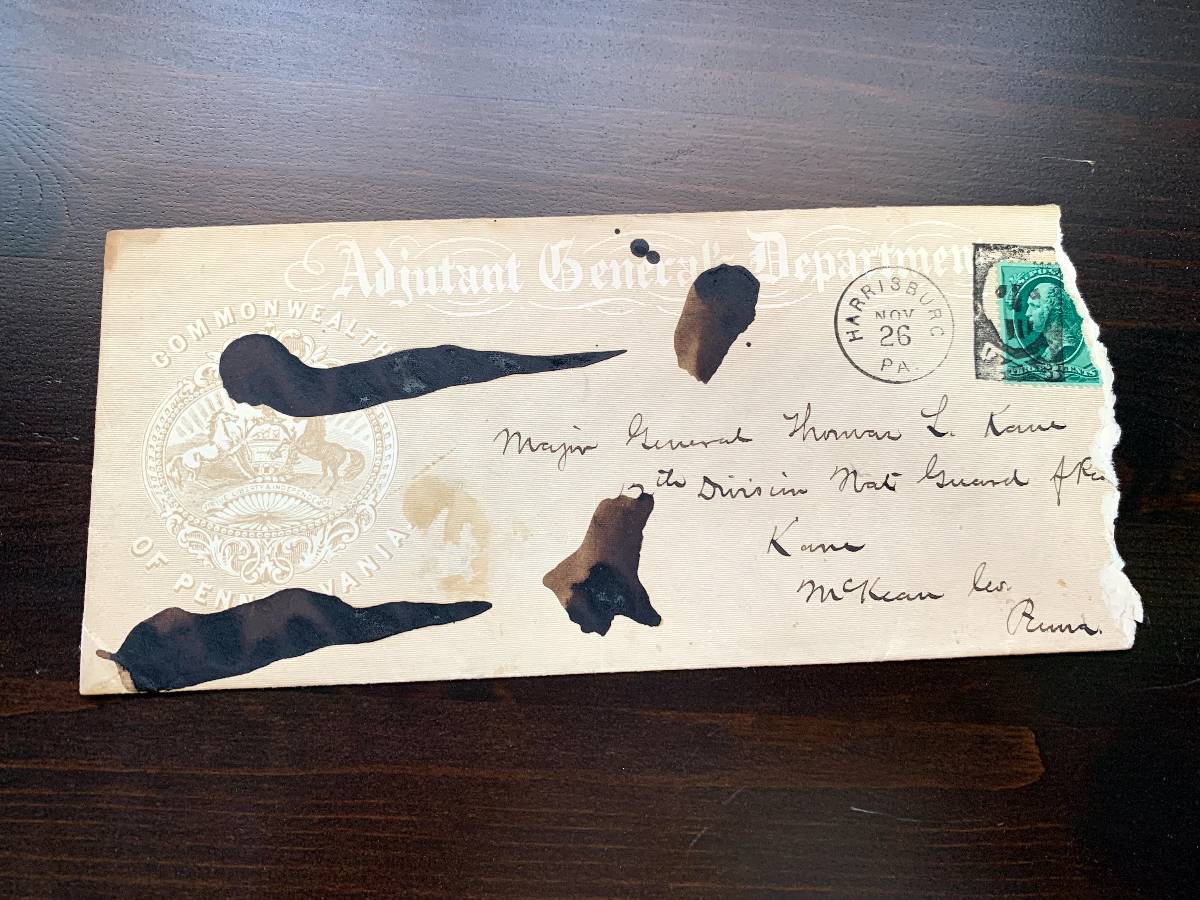 Adjutant General's Departmen
COMMONWEALTH
OF PENNSYLVANIA
HARRISBURG
NOV
26
PA.
Major General Thomas L. Kane
th Division Nat Guard of
Kane
McKean Co.
Penna.